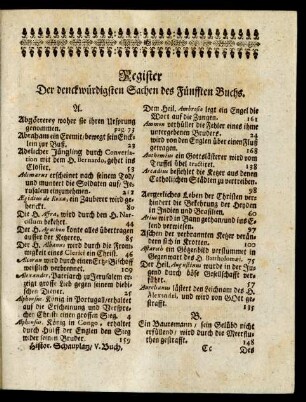 Register
Der denckwürdigsten Sachen des Fünfften Buchs.
A.
Abgötterey woher sie ihren Ursprung
genommen. pag. 73
Abraham ein Eremit, bewegt sein Enck-
lein zur Buß. 23
Adelicher Jüngling durch Conversa-
tion mit dem H. Bernardo, gehet ins
Closter. 53
Ademarus erscheinet nach seinem Tod,
und muntert die Soldaten auf, Je-
rusalem einzunehmen. 212
Ægidius ein Zauberer, wird ge-
Die H. Afra, wird durch den H. Nar-
cissum bekehrt. 44
Der H. Agathon konte alles übertragen
ausser der Ketzerey. 35
Der H. Albanus wird durch die From-
migkeit eines Clerici ein Christ. 46
wird durch einen Ertz-Bischoff
weißlich verbrennet. 113
Alexander, Patriarch zu Jerusalem
grosse Lieb gegen seinem lieben
Dichen Diener. 24
Alphonsus, König in Portugal, erhaltet
auf die Erscheinung und Verspre-
chung Christi einen grossen Sieg. 4
Alphonsus, König in Congo, erhaltet
durch Hülff der Englen den Sieg
wider seinen Bruder. 159
Histor. Schauplatz, V. Buch.
Dem Heil. Ambrosio legt ein Engel die
Wort auf die Zungen. 161
verhüllet die Fehler eines ihme
untergebenen Bruders. 24
wird von den Englen über einen Fluß
getragen. 168
Anthemius ein Gottslästerer wird vom
Teuffel übel tractiret. 238
Arcadius befiehlet die Ketzer aus denen
Catholischen Städten zu vertreiben.
Aergerliches Leben der Christen ver-
hindert die Bekehrung der Heyden
in Indien und Brasilien. 60
Arius wird in Bann gethan und ins E-
lend verwiesen. 35
Aschen der verbrannten Ketzer verwan-
delt sich in Krotten. 40
ein Götzenbild verstummet in
Gegenwart des H. Bartholomæi. 75
Der Heil. Augustinus wurde in der Ju-
gend durch böse Gesellschafft ver-
Aurelianus lästert den Leichnam des H.
Alexandri, und wird von GOtt ge-
strafft.
B.
Ein Bauersmann, sein Gelübd nicht
erfüllend, wird durch die Meersflu-
then gestrafft. 148
Cc Des